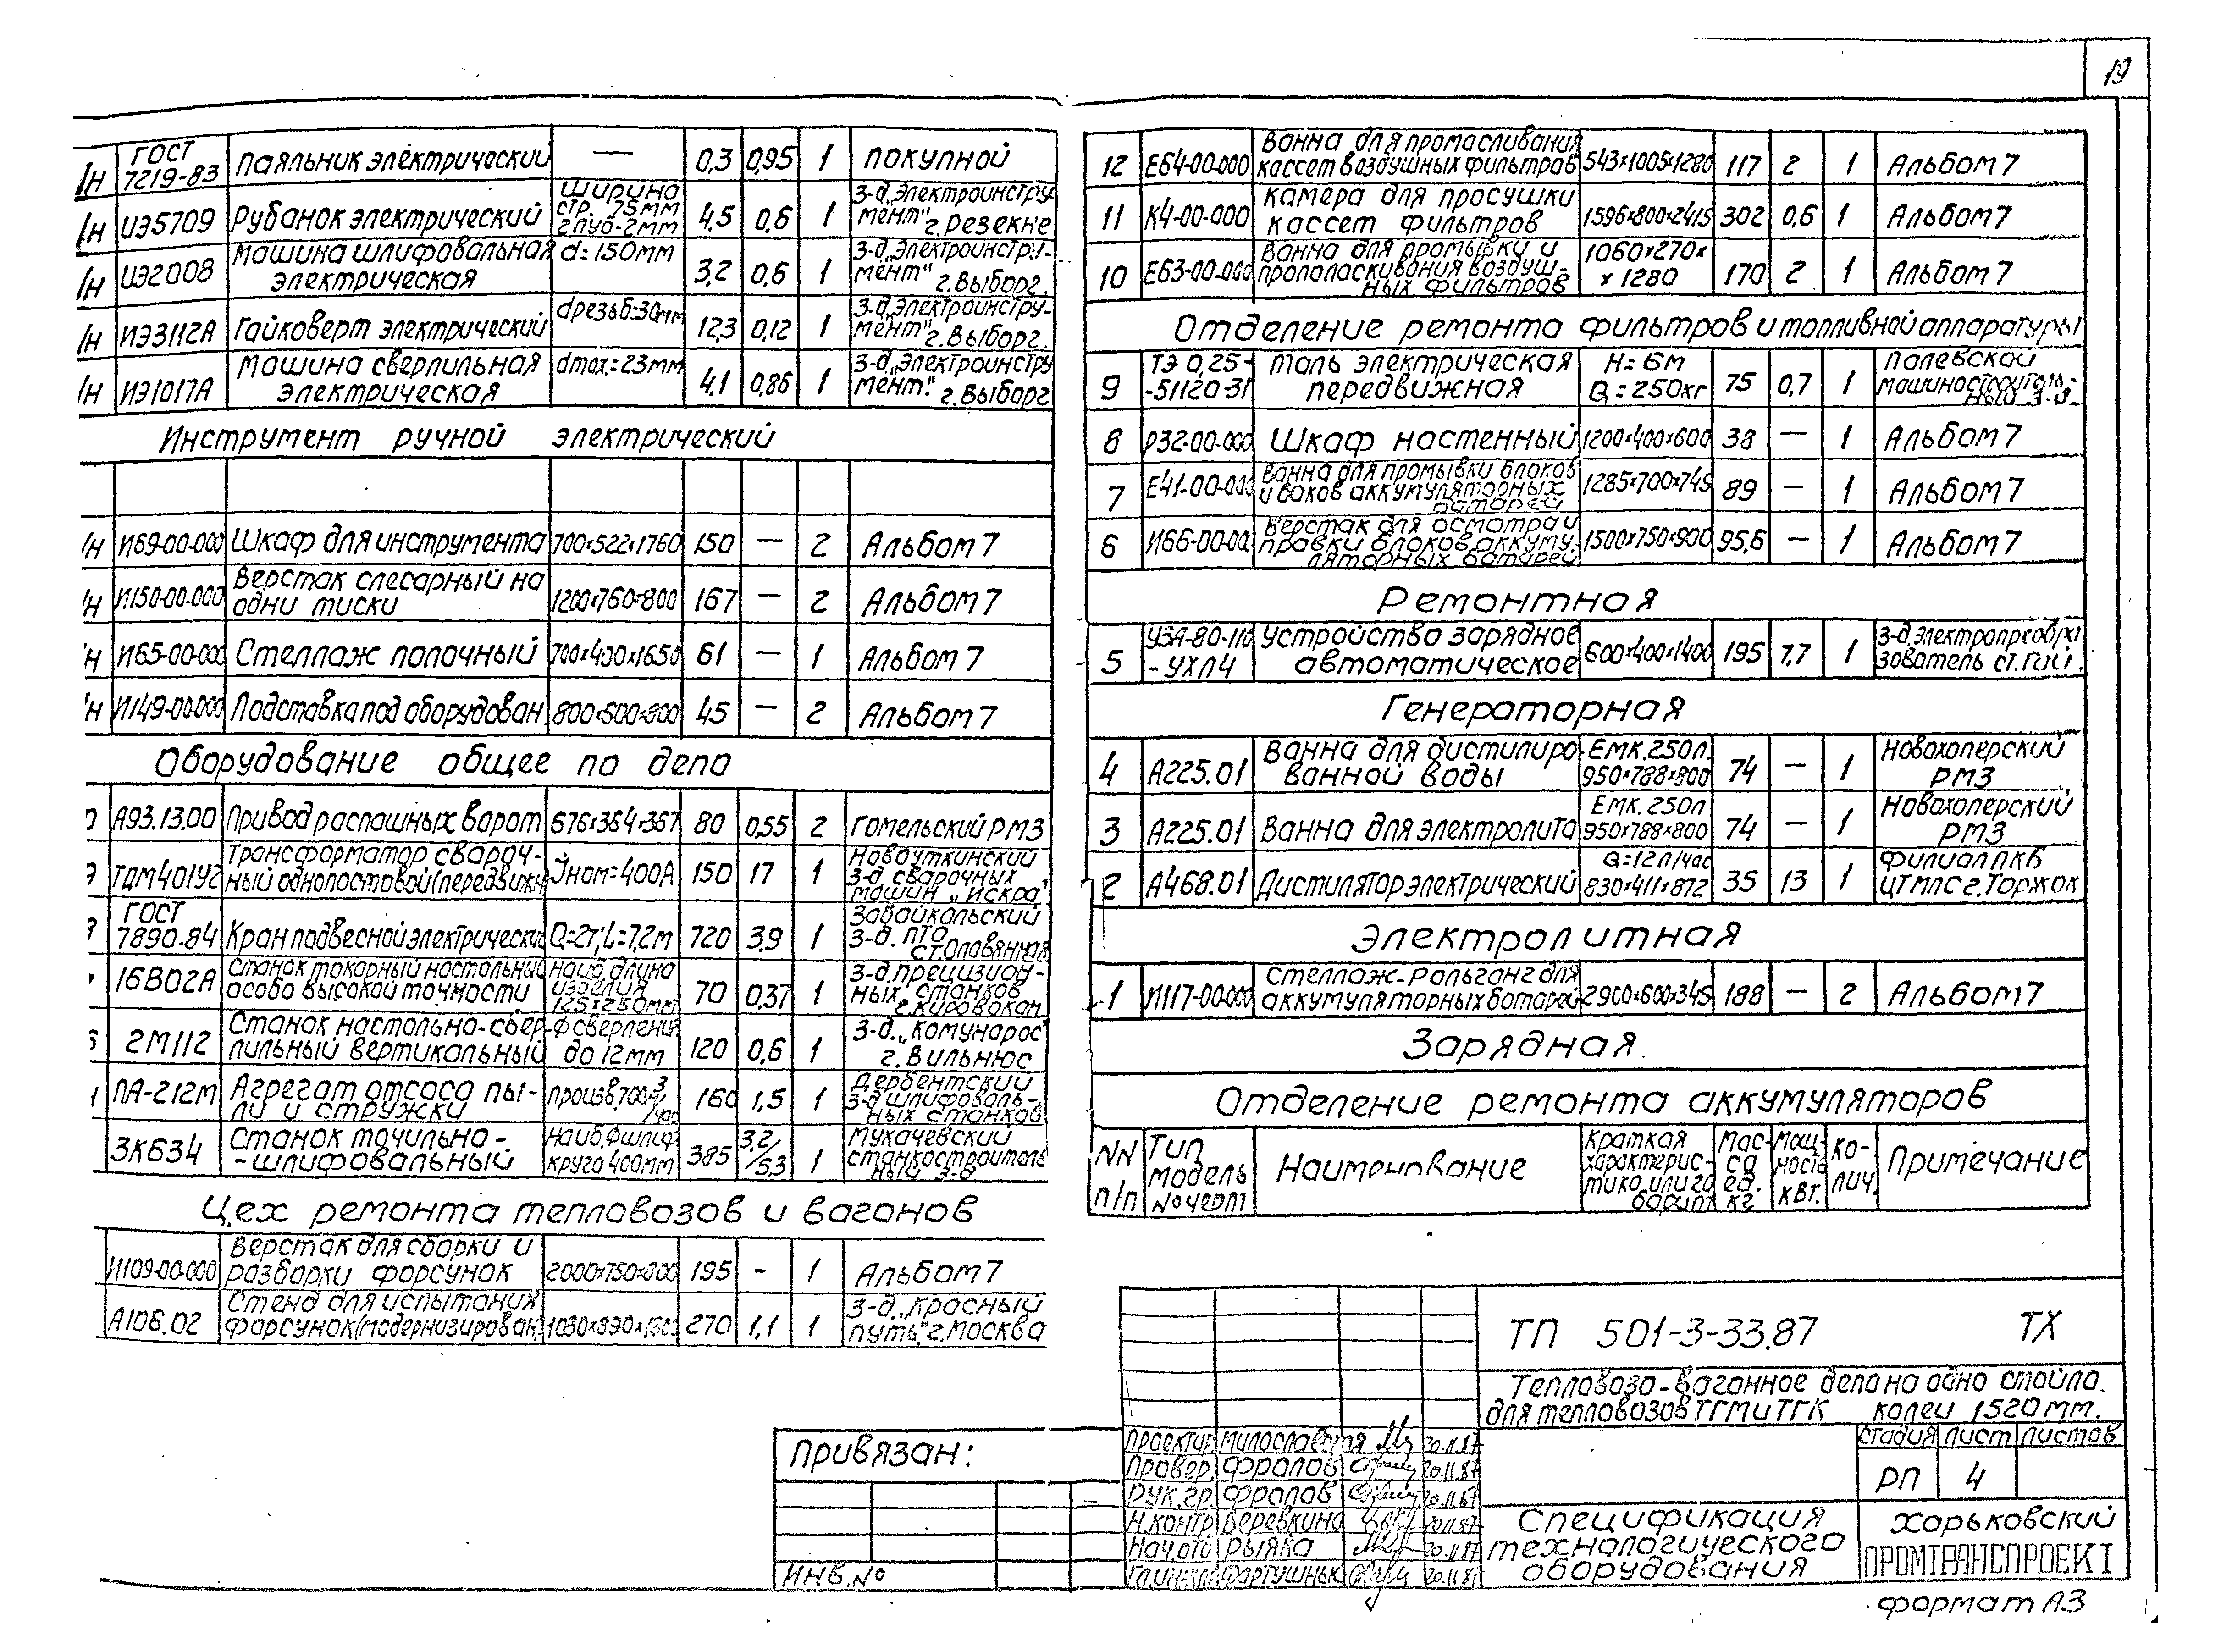 19
1н ГОСТ 7219-83 Паяльник электрический — 0,3 0,95 1 покупной
1н ИЭ5709 Рубанок электрический ширина стр. 75мм глуб-2мм 4,5 0,6 1 з-д „Электроинструмент" г.Резекне
1н ИЭ2008 Машина шлифовальная электрическая d=150мм 3,2 0,6 1 з-д „Электроинструмент" г.Выборг.
1н ИЭ3112А Гайковерт электрический dрезьб=30мм 12,3 0,12 1 з-д „Электроинструмент" г.Выборг.
1н ИЭ1017А Машина сверлильная электрическая dmax=23мм 4,1 0,86 1 з-д „Электроинструмент" г.Выборг
Инструмент ручной электрический
1н И69-00-000 Шкаф для инструмента 700×522×1760 150 — 2 Альбом 7
1н И150-00.000 Верстак слесарный на одни тиски 1200×760×800 167 — 2 Альбом 7
1н И65-00-000 Стеллаж полочный 700×400×1650 61 — 1 Альбом 7
1н И149-00-000 Подставка под оборудован. 45 — 2 Альбом 7
Оборудование общее по депо
А93.13.00 Привод распашных ворот 676×364×367 80 0,55 2 Гомельский РМЗ
ТДМ401У2 Трансформатор сварочный однопостовой (передвижн. Jном=400А 150 17 1 Новоуткинский з-д сварочных машин „Искра"
ГОСТ 7890-84 Кран подвесной электрический Q=2т, L=7,2м 720 3,9 1 Забайкальский з-д. ПТО ст.Оловянная
16В02А Станок токарный настольный особо высокой точности наиб. длина изделия 125×250мм 70 0,37 1 з-д. прецизионных станков г.Кировакан
2М112 Станок настольно-сверлильный вертикальный ф сверления до 12мм 120 0,6 1 з-д. „Комунарас" г.Вильнюс
ПА-212М Агрегат отсоса пыли и стружки произв. 700 м³/час 160 1,5 1 Дербентский з-д шлифовальных станков
3К634 Станок точильно--шлифовальный Наиб. ф шлиф. круга 400мм 385 3,2/5,3 1 Мукачевский станкостроительный з-д
Цех ремонта тепловозов и вагонов
И109-00-000 Верстак для сборки и разборки форсунок 195 - 1 Альбом 7
А106.02 Стенд для испытаний форсунок (модернизирован. 270 1,1 1 з-д. „Красный путь" г.Москва
12 Е64-00-000 Ванна для промасливания кассет воздушных фильтров 543×1005×1280 117 2 1 Альбом 7
11 К4-00-000 Камера для просушки кассет фильтров 1596×800×2415 302 0,6 1 Альбом 7
10 Е63-00-000 Ванна для промывки и прополаскивания воздушных фильтров 1060×270××1280 170 2 1 Альбом 7
Отделение ремонта фильтров и топливной аппаратуры
9 ТЭ 0,25--51120-31 Таль электрическая передвижная H=6м Q=250кг 75 0,7 1 Полевской машиностроительный з-д.
8 Р32-00-000 Шкаф настенный 1200×400×600 38 — 1 Альбом 7
7 Е41-00-000 Ванна для промывки блоков и баков аккумуляторных батарей 1285×700×745 89 — 1 Альбом 7
6 И66-00-00 Верстак для осмотра и правки блоков аккумуляторных батарей 1500×750×900 95,6 — 1 Альбом 7
Ремонтная
5 УЗА-80-110-УХЛ4 Устройство зарядное автоматическое 600×400×1400 195 7,7 1 з-д. Электропреобразователь ст.Гий.
Генераторная
4 А225.01 Ванна для дистилированной воды Емк.250л. 950×788×800 74 — 1 Новохоперский РМЗ
3 А225.01 Ванна для электролита Емк.250л 950×788×800 74 — 1 Новохоперский РМЗ
2 А468.01 Дистилятор электрический Q=12л/час 830×411×872 35 13 1 Филиал ПКБ ЦТМПС г.Торжок
Электролитная
1 И117-00-000 Стеллаж-рольганг для аккумуляторных батарей 2900×600×345 188 — 2 Альбом 7
Зарядная
Отделение ремонта аккумуляторов
NN п/п Тип модель № черт. Наименование Краткая характеристика или габарит Масса ед. кг Мощность кВт. Колич. Примечание
ТП 501-3-33.87 ТХ
Тепловозо-вагонное депо на одно стойло.
для тепловозов ТГМ и ТГК колеи 1520мм.
Стадия Лист Листов
РП 4
Спецификация технологического оборудования
Харьковский
ПРОМТРАНСПРОЕКТ
Привязан:
Инв.№
Проектир Милославская 20.11.87
Провер. Фролов 20.11.87
Рук.гр. Фролов 20.11.87
Н.контр Веревкина 20.11.87
Нач.отд Рыяка 20.11.87
Гл.инж.пр 20.11.87
Формат А3